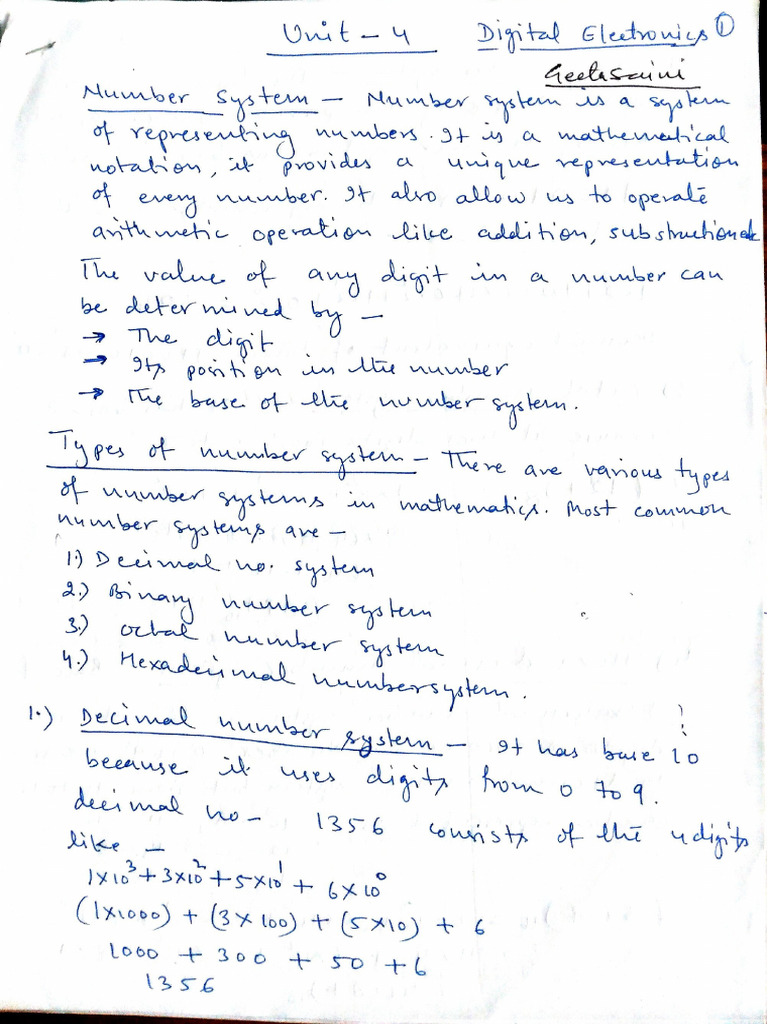 Unit - 4 Digital Electronics ①
Geeta Saini
Number System - Number system is a system
of representing numbers. It is a mathematical
notation, it provides a unique representation
of every number. It also allow us to operate
arithmetic operation like addition, substruction etc
The value of any digit in a number can
be determined by -
→ The digit
→ Its position in the number
→ The base of the number system.
Types of number system - There are various types
of number systems in mathematics. Most common
number systems are -
1.) Decimal no. system
2.) Binary number system
3.) Octal number system
4.) Hexadecimal number system.
1.) Decimal number system - It has base 10
because it uses digits from 0 to 9.
decimal no- 1356 consists of the 4 digits
like -
1×10³ + 3×10² + 5×10¹ + 6×10⁰
(1×1000) + (3×100) + (5×10) + 6
1000 + 300 + 50 + 6
1356